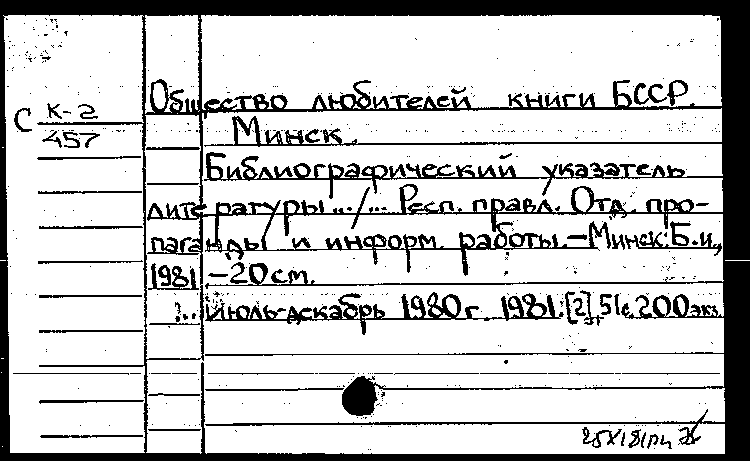 Общество любителей книги БССР.
С К-2
457
Минск.
Библиографический указатель
литературы.../... Респ. правл. Отд. про-
паганды и информ. работы.-Минск: Б.и.,
1981.-20см.
... Июль-декабрь 1980г. 1981. [2], 51с. 200экз.